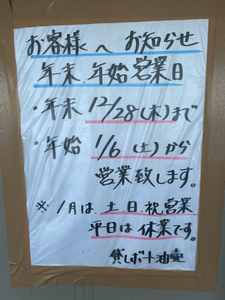 お客様へ お知らせ
年末 年始営業日
・年末 12/28(木)まで
・年始 1/6(土)から
営業致します。
※ 1月は 土日 祝営業
平日は 休業です。
貸しボート油壷